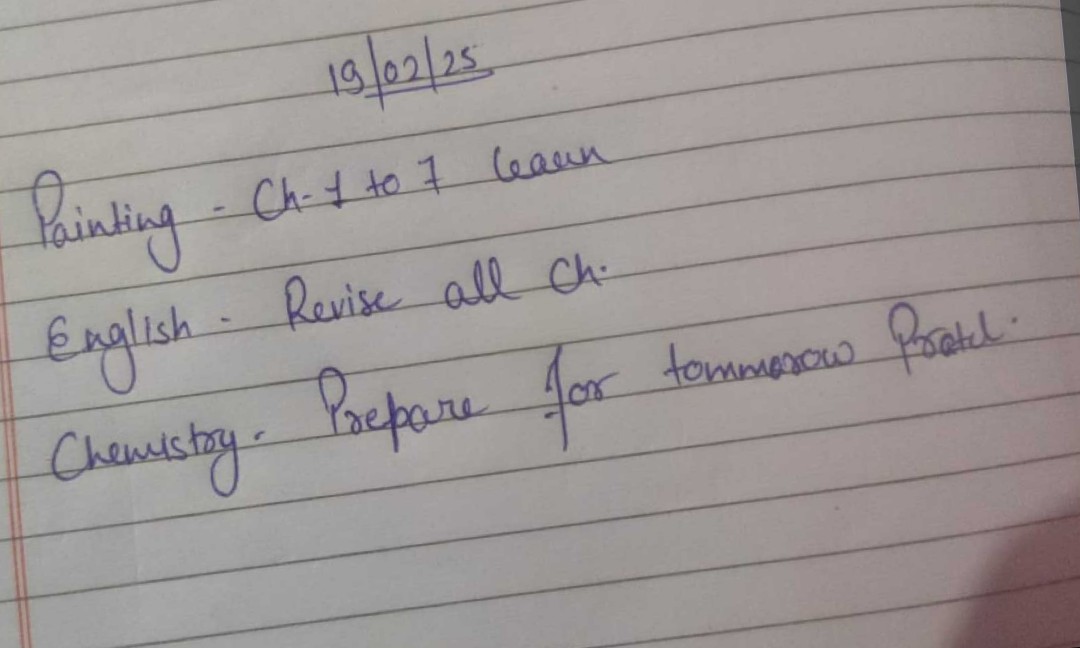 19/02/25
Painting - Ch-1 to 7 learn
English - Revise all Ch.
Chemistry - Prepare for tommorow